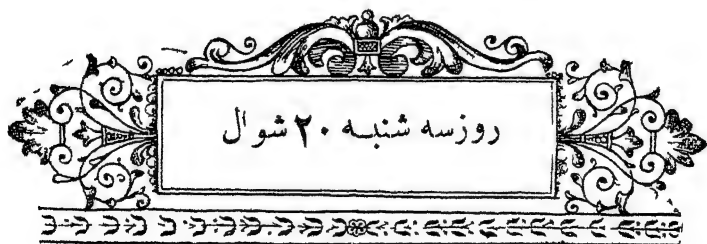 روزسه شنبه ۲۰ شوال